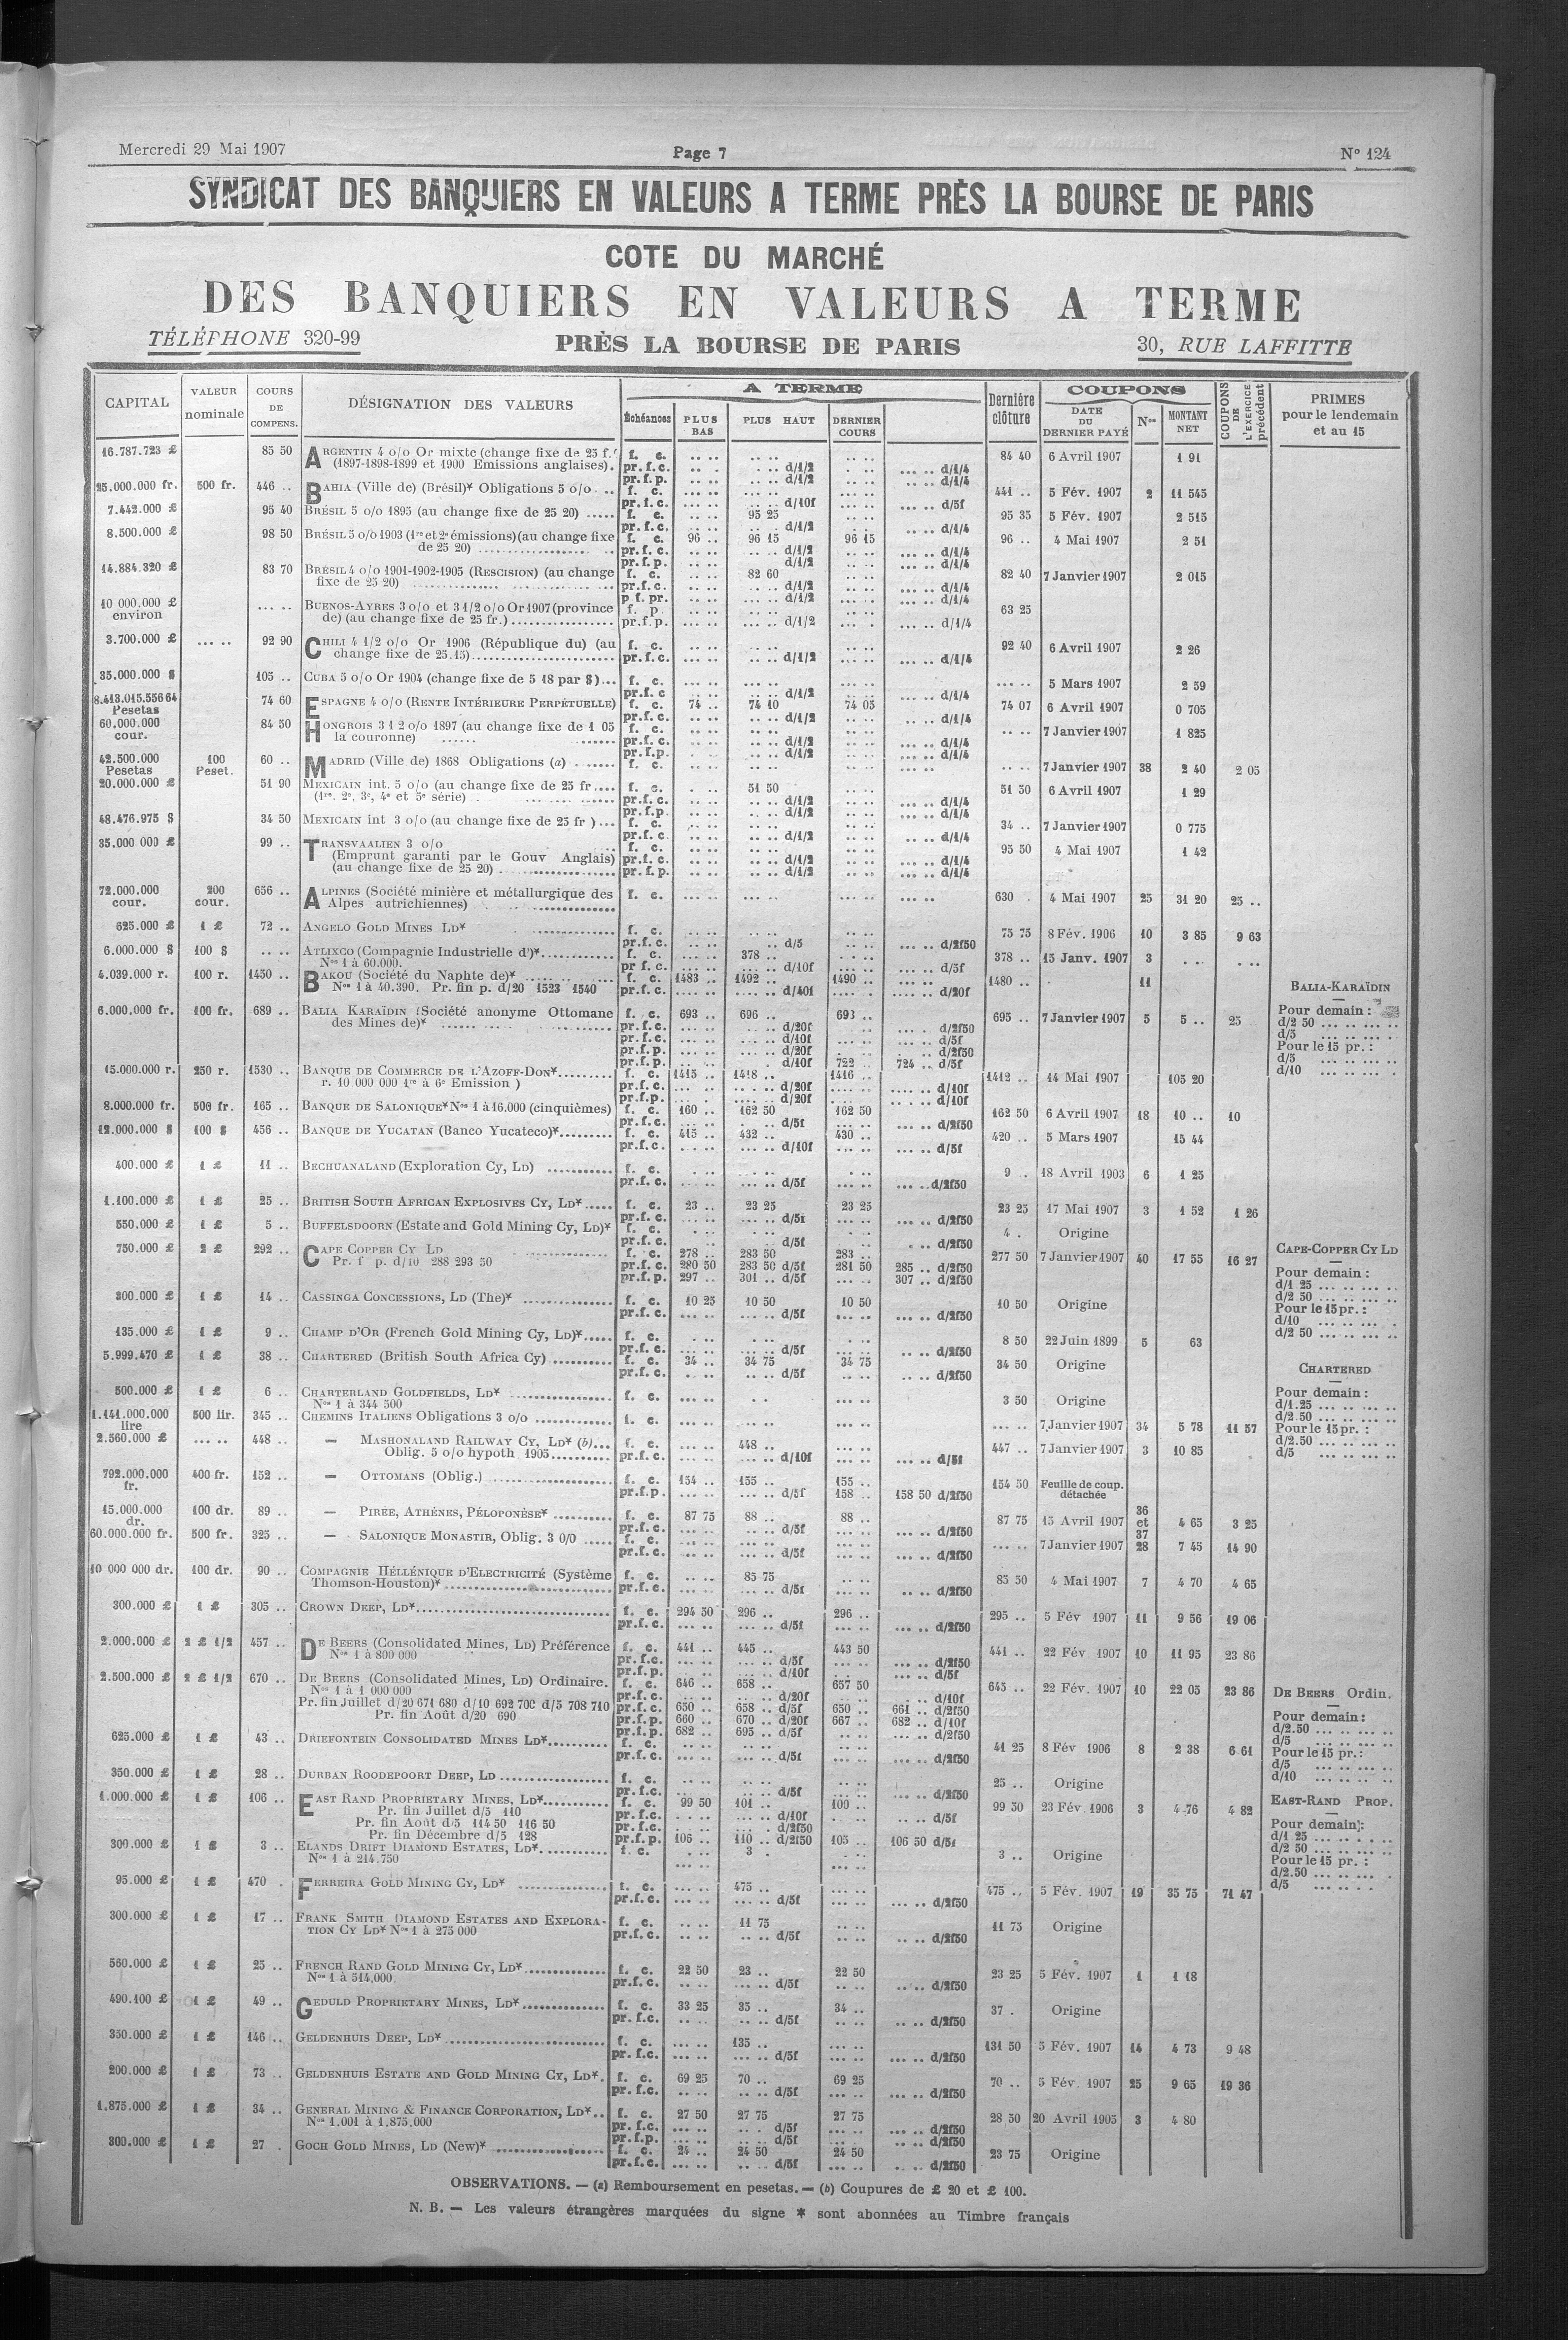 Mercredi 29 Mai 1907 Page 7 N° 124
SYNDICAT DES BANQUIERS EN VALEURS A TERME PRÈS LA BOURSE DE PARIS
COTE DU MARCHÉ
DES BANQUIERS EN VALEURS A TERME
TÉLÉPHONE 320-99 PRÈS LA BOURSE DE PARIS 30, RUE LAFFITTE
CAPITAL VALEUR nominale COURS DE COMPENS. DÉSIGNATION DES VALEURS A TERME Échéances PLUS BAS PLUS HAUT DERNIER COURS Dernière clôture COUPONS DATE DU DERNIER PAYÉ Nos MONTANT NET COUPONS DE L'EXERCICE précédent PRIMES pour le lendemain et au 15
16.787.723 £ 85 50 ARGENTIN 4 o/o Or mixte (change fixe de 25 f.) f. c. 84 40 6 Avril 1907 1 91
(1897-1898-1899 et 1900 Emissions anglaises). pr.f.c. d/1/2 d/1/4
pr.f.p. d/1/2 d/1/4
25.000.000 fr. 500 fr. 446 .. BAHIA (Ville de) (Brésil)* Obligations 5 o/o f. c. 441 .. 5 Fév. 1907 2 11 545
pr.f.c. d/10f d/5f
7.442.000 £ 95 40 BRÉSIL 5 o/o 1895 (au change fixe de 25 20) f. c. 95 25 95 35 5 Fév. 1907 2 515
pr.f.c. d/1/2 d/1/4
8.500.000 £ 98 50 BRÉSIL 5 o/o 1903 (1re et 2e émissions) (au change fixe f. c. 96 .. 96 15 96 15 96 .. 4 Mai 1907 2 51
de 25 20) pr.f.c. d/1/2 d/1/4
pr.f.p. d/1/2 d/1/4
14.884.320 £ 83 70 BRÉSIL 4 o/o 1901-1902-1905 (RESCISION) (au change f. c. 82 60 82 40 7 Janvier 1907 2 015
fixe de 25 20) pr.f.c. d/1/2 d/1/4
p f. pr. d/1/2 d/1/4
10 000.000 £ environ BUENOS-AYRES 3 o/o et 3 1/2 o/o Or 1907 (province f. p. 63 25
de) (au change fixe de 25 fr.) pr.f.p. d/1/2 d/1/4
3.700.000 £ 92 90 CHILI 4 1/2 o/o Or 1906 (République du) (au f. c. 92 40 6 Avril 1907 2 26
change fixe de 25.15) pr.f.c. d/1/2 d/1/4
35.000.000 $ 105 .. CUBA 5 o/o Or 1904 (change fixe de 5 18 par $) f. c. 5 Mars 1907 2 59
pr.f.c d/1/2 d/1/4
8.413.015.556 64 Pesetas 74 60 ESPAGNE 4 o/o (RENTE INTÉRIEURE PERPÉTUELLE) f. c. 74 .. 74 10 74 05 74 07 6 Avril 1907 0 705
pr.f.c. d/1/2 d/1/4
60.000.000 cour. 84 50 HONGROIS 3 1 2 o/o 1897 (au change fixe de 1 05 f. c. 7 Janvier 1907 1 825
la couronne) pr.f.c. d/1/2 d/1/4
pr.f.p. d/1/2 d/1/4
42.500.000 Pesetas 100 Peset. 60 .. MADRID (Ville de) 1868 Obligations (a) f. c. 7 Janvier 1907 38 2 40 2 05
20.000.000 £ 51 90 MEXICAIN int. 5 o/o (au change fixe de 25 fr f. c. 51 50 51 50 6 Avril 1907 1 29
(1re, 2e, 3e, 4e et 5e série) pr.f.c. d/1/2 d/1/4
pr.f.p. d/1/2 d/1/4
48.476.975 $ 34 50 MEXICAIN int 3 o/o (au change fixe de 25 fr ) f. c. 34 .. 7 Janvier 1907 0 775
pr.f.c. d/1/2 d/1/4
35.000 000 £ 99 .. TRANSVAALIEN 3 o/o f. c. 95 50 4 Mai 1907 1 42
(Emprunt garanti par le Gouv Anglais) pr.f.c. d/1/2 d/1/4
(au change fixe de 25 20) pr.f.p. d/1/2 d/1/4
72.000.000 cour. 200 cour. 656 .. ALPINES (Société minière et métallurgique des f. c. 630 . 4 Mai 1907 25 31 20 25 ..
Alpes autrichiennes)
625.000 £ 1 £ 72 .. ANGELO GOLD MINES LD* f. c. 75 75 8 Fév. 1906 10 3 85 9 63
pr.f.c. d/5 d/2f50
6.000.000 $ 100 $ ATLIXCO (Compagnie Industrielle d')* f. c. 378 .. 378 .. 15 Janv. 1907 3
Nos 1 à 60.000. pr f. c. d/10f d/5f
4.039.000 r. 100 r. 1450 .. BAKOU (Société du Naphte de)* f. c. 1483 .. 1492 .. 1490 .. 1480 .. 11
Nos 1 à 40.390. Pr. fin p. d/20 1523 1540 pr.f.c. d/40f d/20f
6.000.000 fr. 100 fr. 689 .. BALIA KARAÏDIN (Société anonyme Ottomane f. c. 693 .. 696 .. 693 .. 695 .. 7 Janvier 1907 5 5 .. 25
des Mines de)* pr.f.c. d/20f d/2f50
pr.f.c. d/10f d/5f
pr.f.p. d/20f d/2f50
pr.f.p. d/10f 722 724 .. d/5f
BALIA-KARAÏDIN
Pour demain :
d/2 50
d/5
Pour le 15 pr. :
d/5
d/10
15.000.000 r. 250 r. 1530 .. BANQUE DE COMMERCE DE L'AZOFF-DON* f. c. 1415 .. 1418 .. 1416 .. 1412 .. 14 Mai 1907 105 20
r. 10 000 000 1re à 6e Emission ) pr.f.c. d/20f d/10f
pr.f.p. d/20f d/10f
8.000.000 fr. 500 fr. 165 .. BANQUE DE SALONIQUE* Nos 1 à 16.000 (cinquièmes) f. c. 160 .. 162 50 162 50 162 50 6 Avril 1907 18 10 .. 10
pr.f.c. d/5f d/2f50
12.000.000 $ 100 $ 456 .. BANQUE DE YUCATAN (Banco Yucateco)* f. c. 415 .. 432 .. 430 .. 420 .. 5 Mars 1907 15 44
pr.f.c. d/10f d/5f
400.000 £ 1 £ 11 .. BECHUANALAND (Exploration Cy, LD) f. c. 9 .. 18 Avril 1903 6 1 25
pr.f.c. d/5f d/2f50
1.100.000 £ 1 £ 25 .. BRITISH SOUTH AFRICAN EXPLOSIVES CY, LD* f. c. 23 .. 23 25 23 25 23 25 17 Mai 1907 3 1 52 1 26
pr.f.c. d/5f d/2f50
550.000 £ 1 £ 5 .. BUFFELSDOORN (Estate and Gold Mining Cy, LD)* f. c. 4 . Origine
d/5f d/2f50
750.000 £ 2 £ 292 .. CAPE COPPER CY LD f. c. 278 .. 283 50 283 .. 277 50 7 Janvier 1907 40 17 55 16 27
Pr. f p. d/10 288 293 50 pr.f.c. 280 50 283 50 d/5f 281 50 285 .. d/2f50
pr.f.p. 297 .. 301 .. d/5f 307 .. d/2f50
CAPE-COPPER CY LD
Pour demain :
d/1 25
d/2 50
Pour le 15 pr. :
d/10
d/2 50
300.000 £ 1 £ 14 .. CASSINGA CONCESSIONS, LD (The)* f. c. 10 25 10 50 10 50 10 50 Origine
pr.f.c. d/5f d/2f50
135.000 £ 1 £ 9 .. CHAMP D'OR (French Gold Mining Cy, LD)* f. c. 8 50 22 Juin 1899 5 63
pr.f.c. d/5f d/2f50
5.999.470 £ 1 £ 38 .. CHARTERED (British South Africa Cy) f. c. 34 .. 34 75 34 75 34 50 Origine
pr.f.c. d/5f d/2f50
500.000 £ 1 £ 6 .. CHARTERLAND GOLDFIELDS, LD* f. c. 3 50 Origine
Nos 1 à 344 500
CHARTERED
Pour demain :
d/1.25
d/2.50
Pour le 15 pr. :
d/2.50
d/5
1.141.000.000 lire 500 lir. 345 .. CHEMINS ITALIENS Obligations 3 o/o f. c. 7 Janvier 1907 34 5 78 11 57
2.560.000 £ 448 .. — MASHONALAND RAILWAY CY, LD* (b) f. c. 448 .. 447 .. 7 Janvier 1907 3 10 85
Oblig. 5 o/o hypoth 1905 pr.f.c. d/10f d/5f
792.000.000 fr. 400 fr. 152 .. — OTTOMANS (Oblig.) f. c. 154 .. 155 .. 155 .. 154 50 Feuille de coup. détachée
pr.f.p. d/5f 158 .. 158 50 d/2f50
15.000.000 dr. 100 dr. 89 .. — PIRÉE, ATHÈNES, PÉLOPONÈSE* f. c. 87 75 88 .. 88 .. 87 75 15 Avril 1907 36 et 37 4 65 3 25
pr.f.c. d/5f d/2f50
60.000.000 fr. 500 fr. 325 .. — SALONIQUE MONASTIR, Oblig. 3 0/0 f. c. 7 Janvier 1907 28 7 45 14 90
pr.f.c. d/5f d/2f50
10 000 000 dr. 100 dr. 90 .. COMPAGNIE HÉLLÉNIQUE D'ELECTRICITÉ (Système f. c. 85 75 85 50 4 Mai 1907 7 4 70 4 65
Thomson-Houston)* pr.f.c. d/5f d/2f50
300.000 £ 1 £ 305 .. CROWN DEEP, LD* f. c. 294 50 296 .. 296 .. 295 .. 5 Fév 1907 11 9 56 19 06
pr.f.c. d/5f d/2f50
2.000.000 £ 2 £ 1/2 457 .. DE BEERS (Consolidated Mines, LD) Préférence f. c. 441 .. 445 .. 443 50 441 .. 22 Fév 1907 10 11 95 23 86
Nos 1 à 800 000 pr.f.c. d/5f d/2f50
pr.f.p. d/10f d/5f
2.500.000 £ 2 £ 1/2 670 .. DE BEERS (Consolidated Mines, LD) Ordinaire. f. c. 646 .. 658 .. 657 50 645 .. 22 Fév. 1907 10 22 05 23 86
Nos 1 à 1 000 000 pr.f.c. d/20f d/10f
Pr. fin Juillet d/20 671 680 d/10 692 700 d/5 708 710 pr.f.c. 650 .. 658 .. d/5f 650 .. 661 .. d/2f50
Pr. fin Août d/20 690 pr.f.p. 660 .. 670 .. d/20f 667 .. 682 .. d/10f
pr.f.p. 682 .. 695 .. d/5f d/2f50
DE BEERS Ordin.
Pour demain :
d/2.50
d/5
Pour le 15 pr. :
d/5
d/10
625.000 £ 1 £ 43 .. DRIEFONTEIN CONSOLIDATED MINES LD* f. c. 41 25 8 Fév 1906 8 2 38 6 61
pr.f.c. d/5f d/2f50
350.000 £ 1 £ 28 .. DURBAN ROODEPOORT DEEP, LD f. c. 25 .. Origine
pr.f.c. d/5f d/2f50
1.000.000 £ 1 £ 106 .. EAST RAND PROPRIETARY MINES, LD* f. c. 99 50 101 .. 100 .. 99 50 23 Fév. 1906 3 4 76 4 82
Pr. fin Juillet d/5 110 pr.f.c. d/10f d/5f
Pr. fin Août d/5 114 50 116 50 pr.f.c. d/2f50
Pr. fin Décembre d/5 128 pr.f.p. 106 .. 110 .. d/2f50 105 .. 106 50 d/5f
EAST-RAND PROP.
Pour demain :
d/1 25
d/2 50
Pour le 15 pr. :
d/2.50
d/5
300.000 £ 1 £ 3 .. ELANDS DRIFT DIAMOND ESTATES, LD* f. c. 3 . 3 .. Origine
Nos 1 à 214.750
95.000 £ 1 £ 470 . FERREIRA GOLD MINING CY, LD* f. c. 475 .. 475 .. 5 Fév. 1907 19 35 75 71 47
pr.f.c. d/5f d/2f50
300.000 £ 1 £ 17 .. FRANK SMITH DIAMOND ESTATES AND EXPLORA- f. c. 11 75 11 75 Origine
TION CY LD* Nos 1 à 275 000 pr.f.c. d/5f d/2f50
560.000 £ 1 £ 25 .. FRENCH RAND GOLD MINING CY, LD* f. c. 22 50 23 .. 22 50 23 25 5 Fév. 1907 1 1 18
Nos 1 à 514.000 pr.f.c. d/5f d/2f50
490.100 £ 1 £ 49 .. GEDULD PROPRIETARY MINES, LD* f. c. 33 25 35 .. 34 .. 37 . Origine
pr. f.c. d/5f d/2f50
350.000 £ 1 £ 146 .. GELDENHUIS DEEP, LD* f. c. 135 .. 131 50 5 Fév. 1907 14 4 73 9 48
pr. f.c. d/5f d/2f50
200.000 £ 1 £ 73 .. GELDENHUIS ESTATE AND GOLD MINING CY, LD*. f. c. 69 25 70 .. 69 25 70 .. 5 Fév. 1907 25 9 65 19 36
pr. f.c. d/5f d/2f50
1.875.000 £ 1 £ 34 .. GENERAL MINING & FINANCE CORPORATION, LD* f. c. 27 50 27 75 27 75 28 50 20 Avril 1905 3 4 80
Nos 1.001 à 1.875.000 pr. f.c. d/5f d/2f50
pr.f.p. d/5f d/2f50
300.000 £ 1 £ 27 . GOCH GOLD MINES, LD (New)* f. c. 24 .. 24 50 24 50 23 75 Origine
pr.f.c. d/5f d/2f50
OBSERVATIONS. — (a) Remboursement en pesetas. — (b) Coupures de £ 20 et £ 100.
N. B. — Les valeurs étrangères marquées du signe * sont abonnées au Timbre français